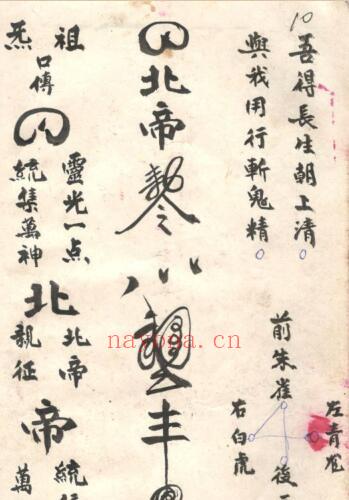 10
吾得長生朝上清
與我用行斬鬼精
前朱雀
左青龙
右白虎
後
北帝勅令
八八
丰
祖炁
口傳
靈光一点
統集萬神
北
北帝
親征
帝
統
萬
nayona.cn